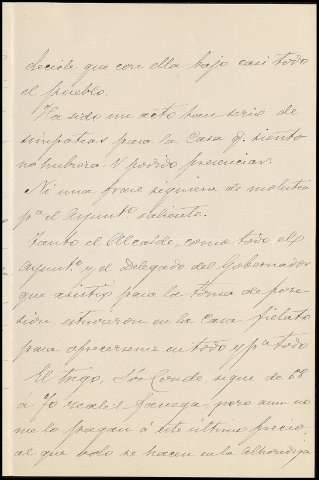 decirle que con ella bajo casi todo
el pueblo.
Ha sido un acto tan serio de
simpatias para la Casa q. siento
no hubiera V podido presenciar.
Ni una frase siquiera de molestia
pª el Ayuntº saliente.
Tanto el Alcalde, como todo el
Ayuntº y el Delegado del Gobernador
que asistió para la toma de pose
sión, estuvieron en la Casa
para ofrecerseme en todo y pª todo
El trigo, Sōr Conde, sigue de 68
á 70 reales fanega, pero aun no
me lo pagan á este ultimo precio,
al que solo se hacen en la alhondiga